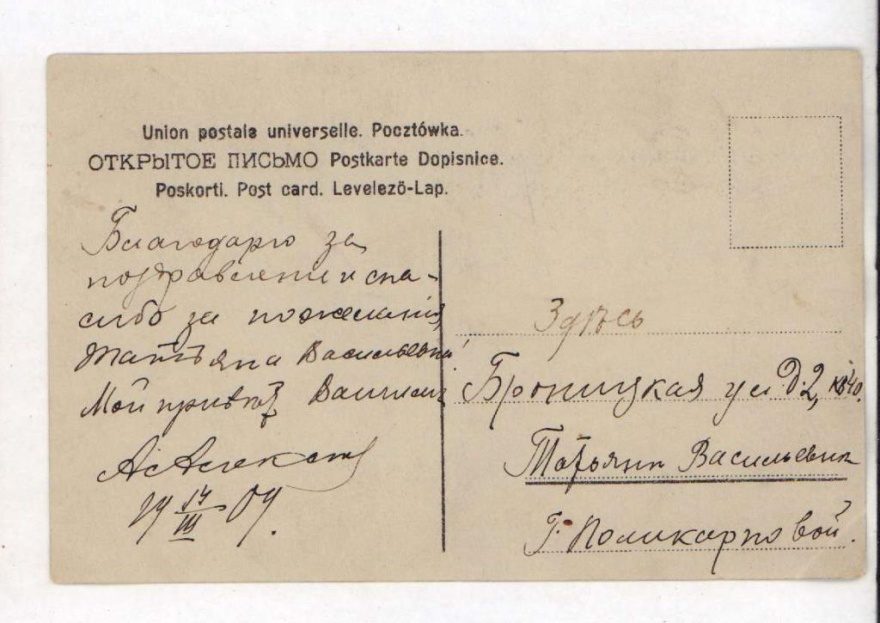 Union postale universelle. Pocztówka.
ОТКРЫТОЕ ПИСЬМО Postkarte Dopisnice.
Poskorti. Post card. Levelező-Lap.
Благодарю за
поздравление и спа-
сибо за пожелания,
Татьяна Васильевна!
Мой привѣт Вашим
19 14/III 09.
Здѣсь
Броницкая ул. Д. 2, кв 40.
Татьянѣ Васильевнѣ
Г. Поликарповой.